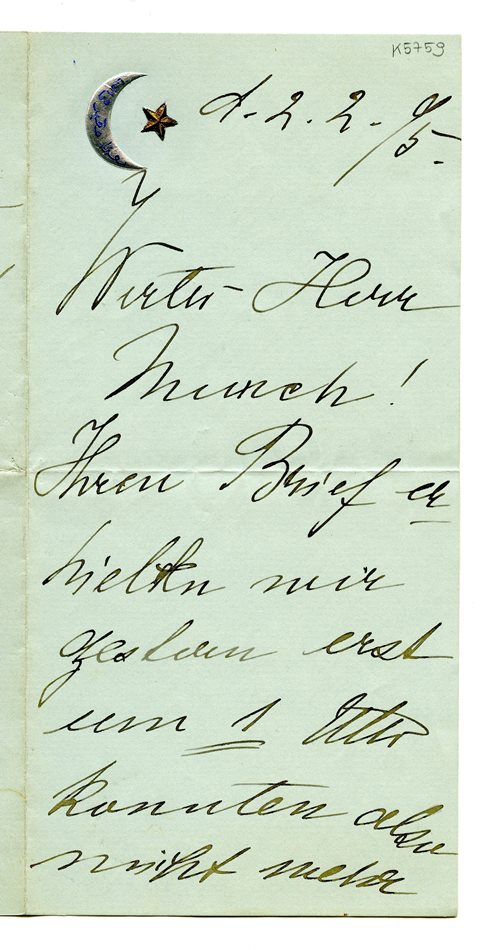 K5759
d. 2. 2. 95.
Werter Herr
Munch!
Ihren Brief er
hielten wir
gestern erst
um 1 Uhr
konnten also
nicht mehr